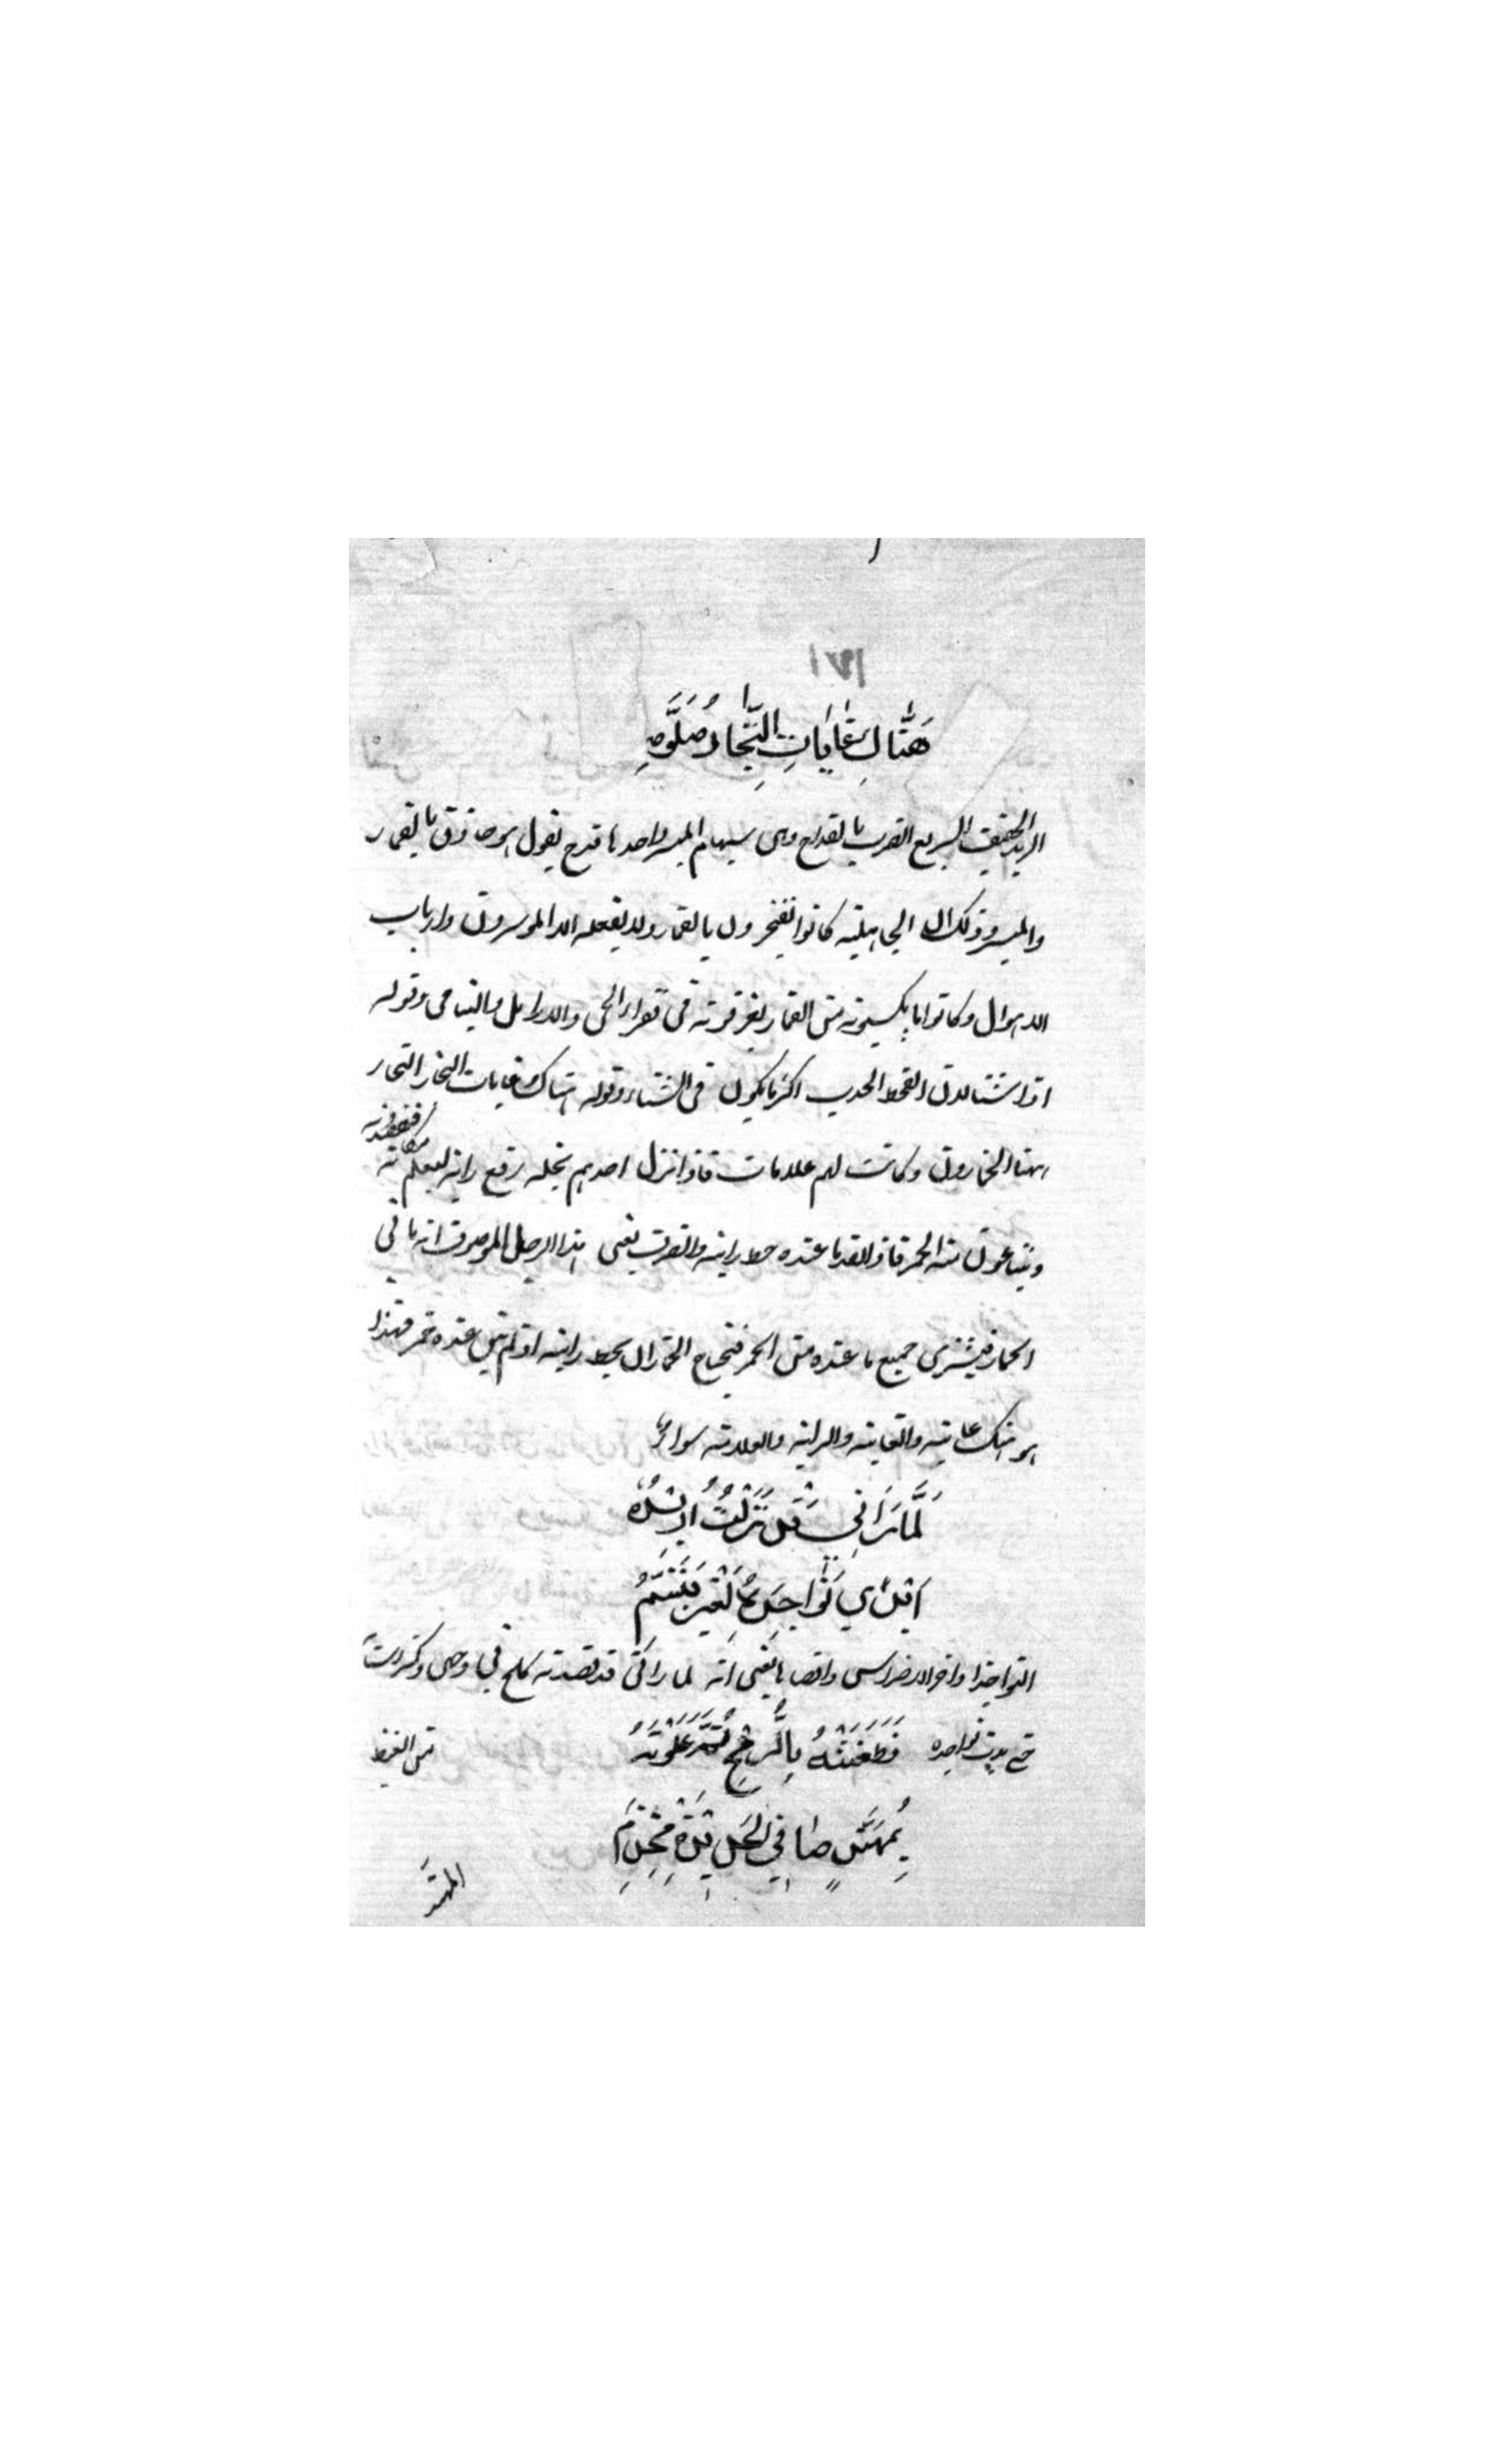 ١٧١
هَتَّاكِ غَايَاتِ التِّجَارِ مُلَوَّمِ
الربذ الخفيف السريع الضرب بالقداح وهى سهام الميسر واحدها قدح يقول هو حاذق بالقمار
والميسر وذلك ان الجاهلية كانوا يفتخرون بالقمار ولا يفعله الا الموسرون وارباب
الاموال وكانوا ما يكسبونه من القمار يفرقونه فى فقراء الحى والارامل واليتامى وقوله
اذا شتا لان القحط والجدب اكثر ما يكون فى الشتاء وقوله هتاك غايات التجار التجار
ههنا الخمارون وكانت لهم علامات فاذا نزل احدهم بمحله رفع راية ليعلم مكانه فيقصدونه
ويبتاعون منه الخمر فاذا نفد ما عنده حط رايته وانصرف يعنى هذا الرجل الموصوف انه ياتى
الخمار فيشترى جميع ما عنده من الخمر فيحتاج الخمار ان يحط رايته اذ لم يبق عنده خمر فهذا
هو هتك غايته والغاية والراية والعلامة سواء
لَمَّا رَآنِي قَدْ نَزَلْتُ أُرِيدُهُ
أَبْدَى نَوَاجِذَهُ لِغَيْرِ تَبَسُّمِ
النواجذ اواخر الاضراس واقصاها يعنى انه لما رآنى قد قصدته كلح فى وجهى وكثر
حتى بدت نواجذه من الغيظ
فَطَعَنْتُهُ بِالرُّمْحِ ثُمَّ عَلَوْتُهُ
بِمُهَنَّدٍ صَافِي الحَدِيْدَةِ مِخْذَمِ
المهند